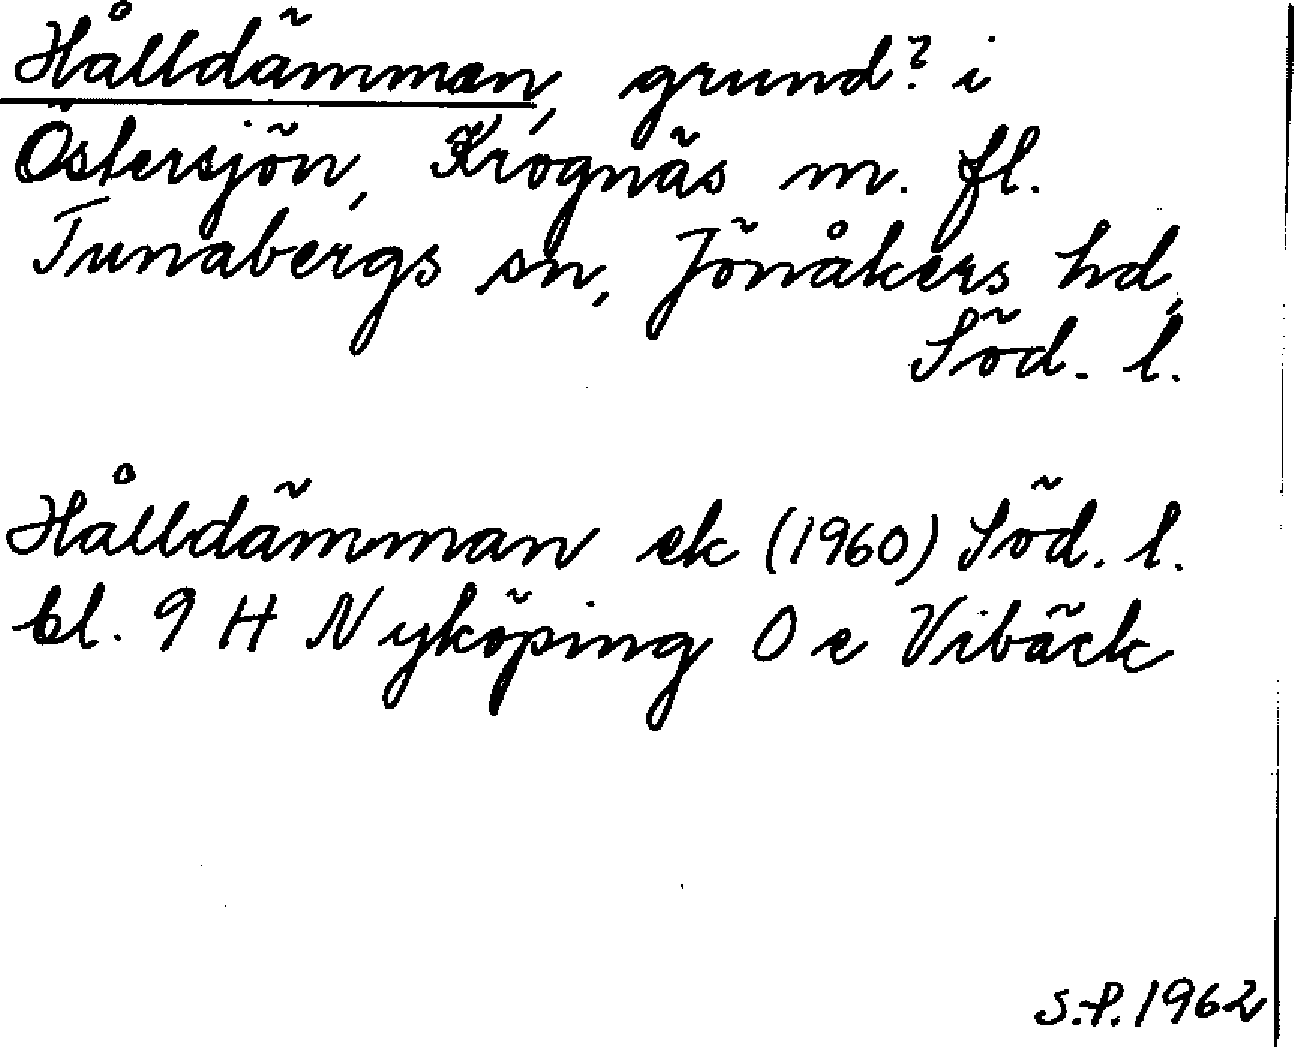 Hålldämman, grund? i
Östersjön, Krognäs m. fl.
Tunabergs sn, Jönåkers hd,
Söd. l.
Hålldämman ek (1960) Söd. l.
bl. 9 H Nyköping O e Vibäck
S.P. 1962